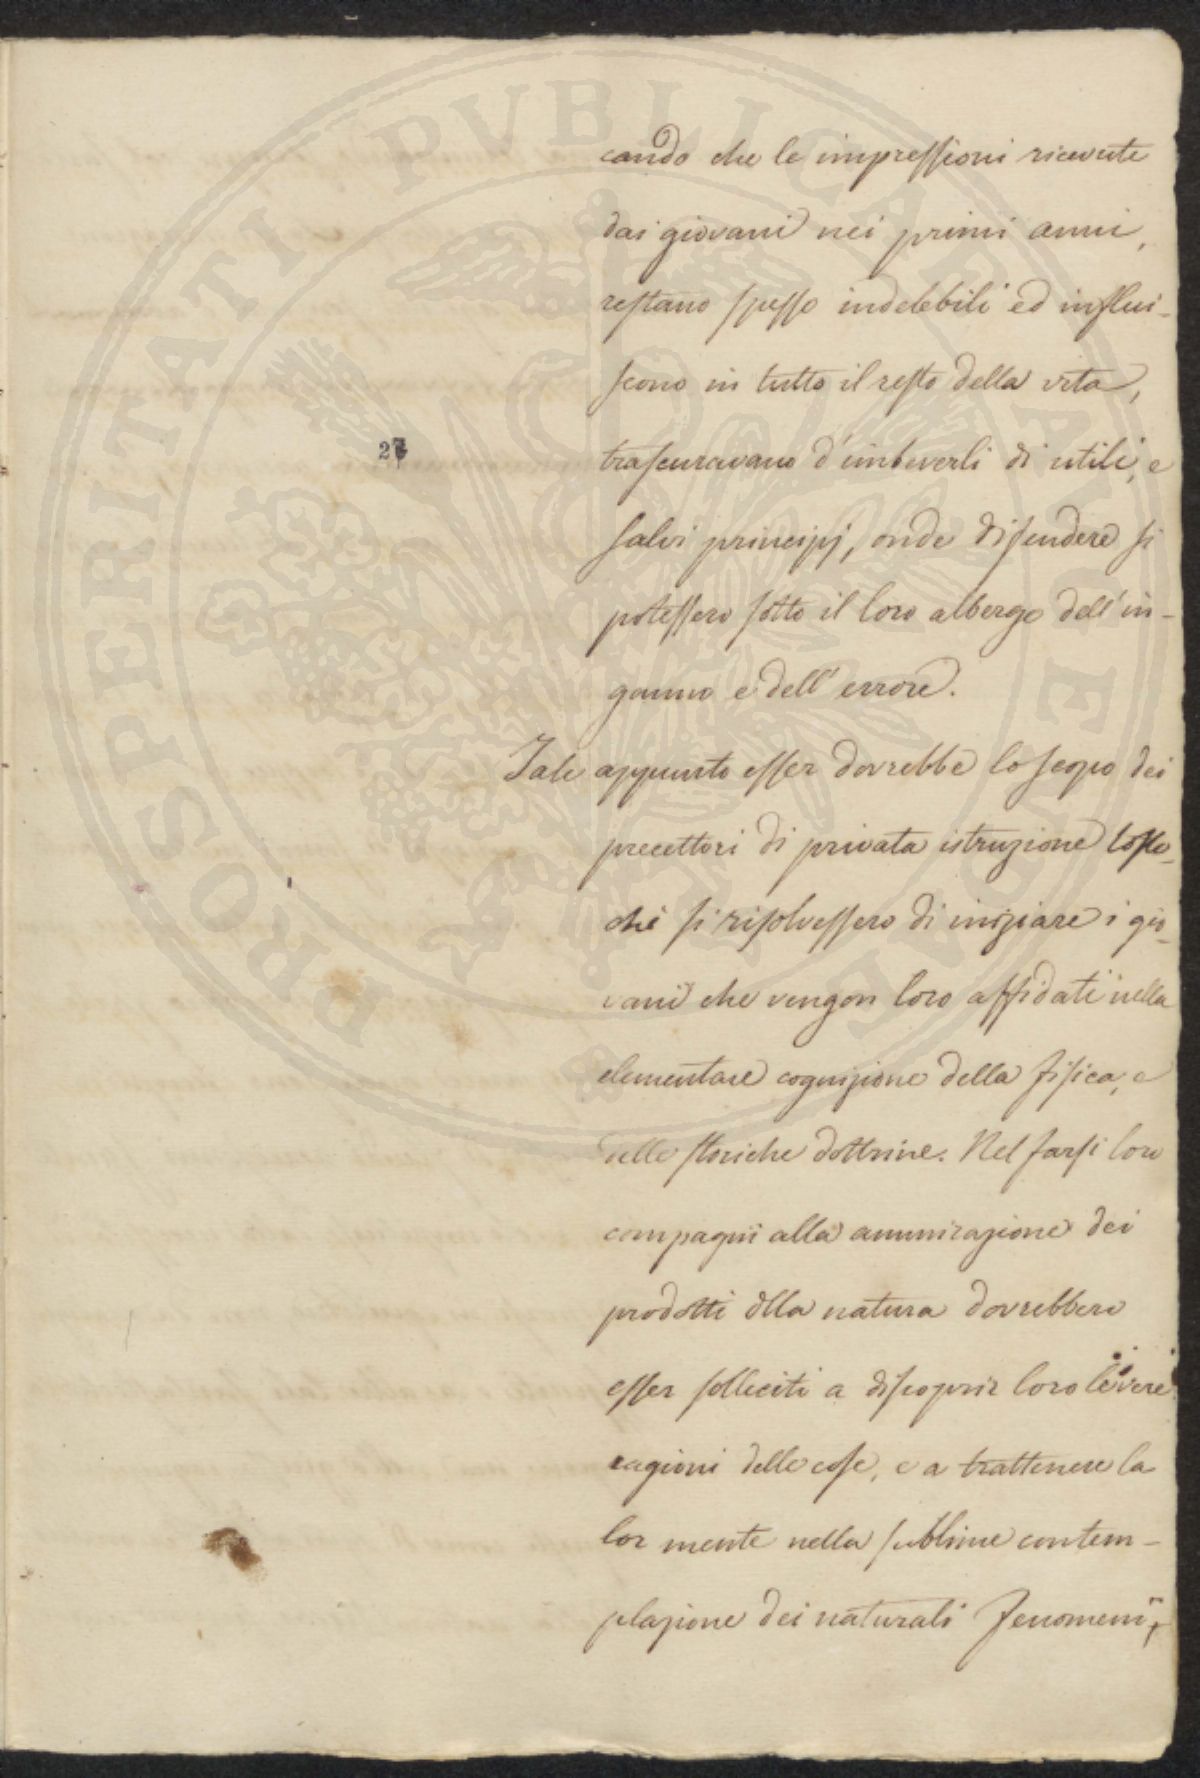 cando che le impressioni ricevute
dai giovani nei primi anni,
restano spesso indelebili ed influi-
scono in tutto il resto della vita,
27
trascuravano d'imbeverli di utili, e
salvi principj, onde difendere si
potessero sotto il loro albergo dell'in-
ganno e dell'errore.
Tale appunto esser dovrebbe lo scopo dei
precettori di privata istruzione tosto-
chè si risolvessero di iniziare i gio-
vani che vengon loro affidati nella
elementare cognizione della fisica, e
nelle storiche dottrine. Nel farsi loro
compagni alla ammirazione dei
prodotti dlla natura dovrebbero
esser solleciti a discoprir loro le vere
ragioni delle cose, e a trattenere la
lor mente nella sublime contem-
plazione dei naturali Fenomeni,
PROSPERITATI PVBLICAE AVGENDAE